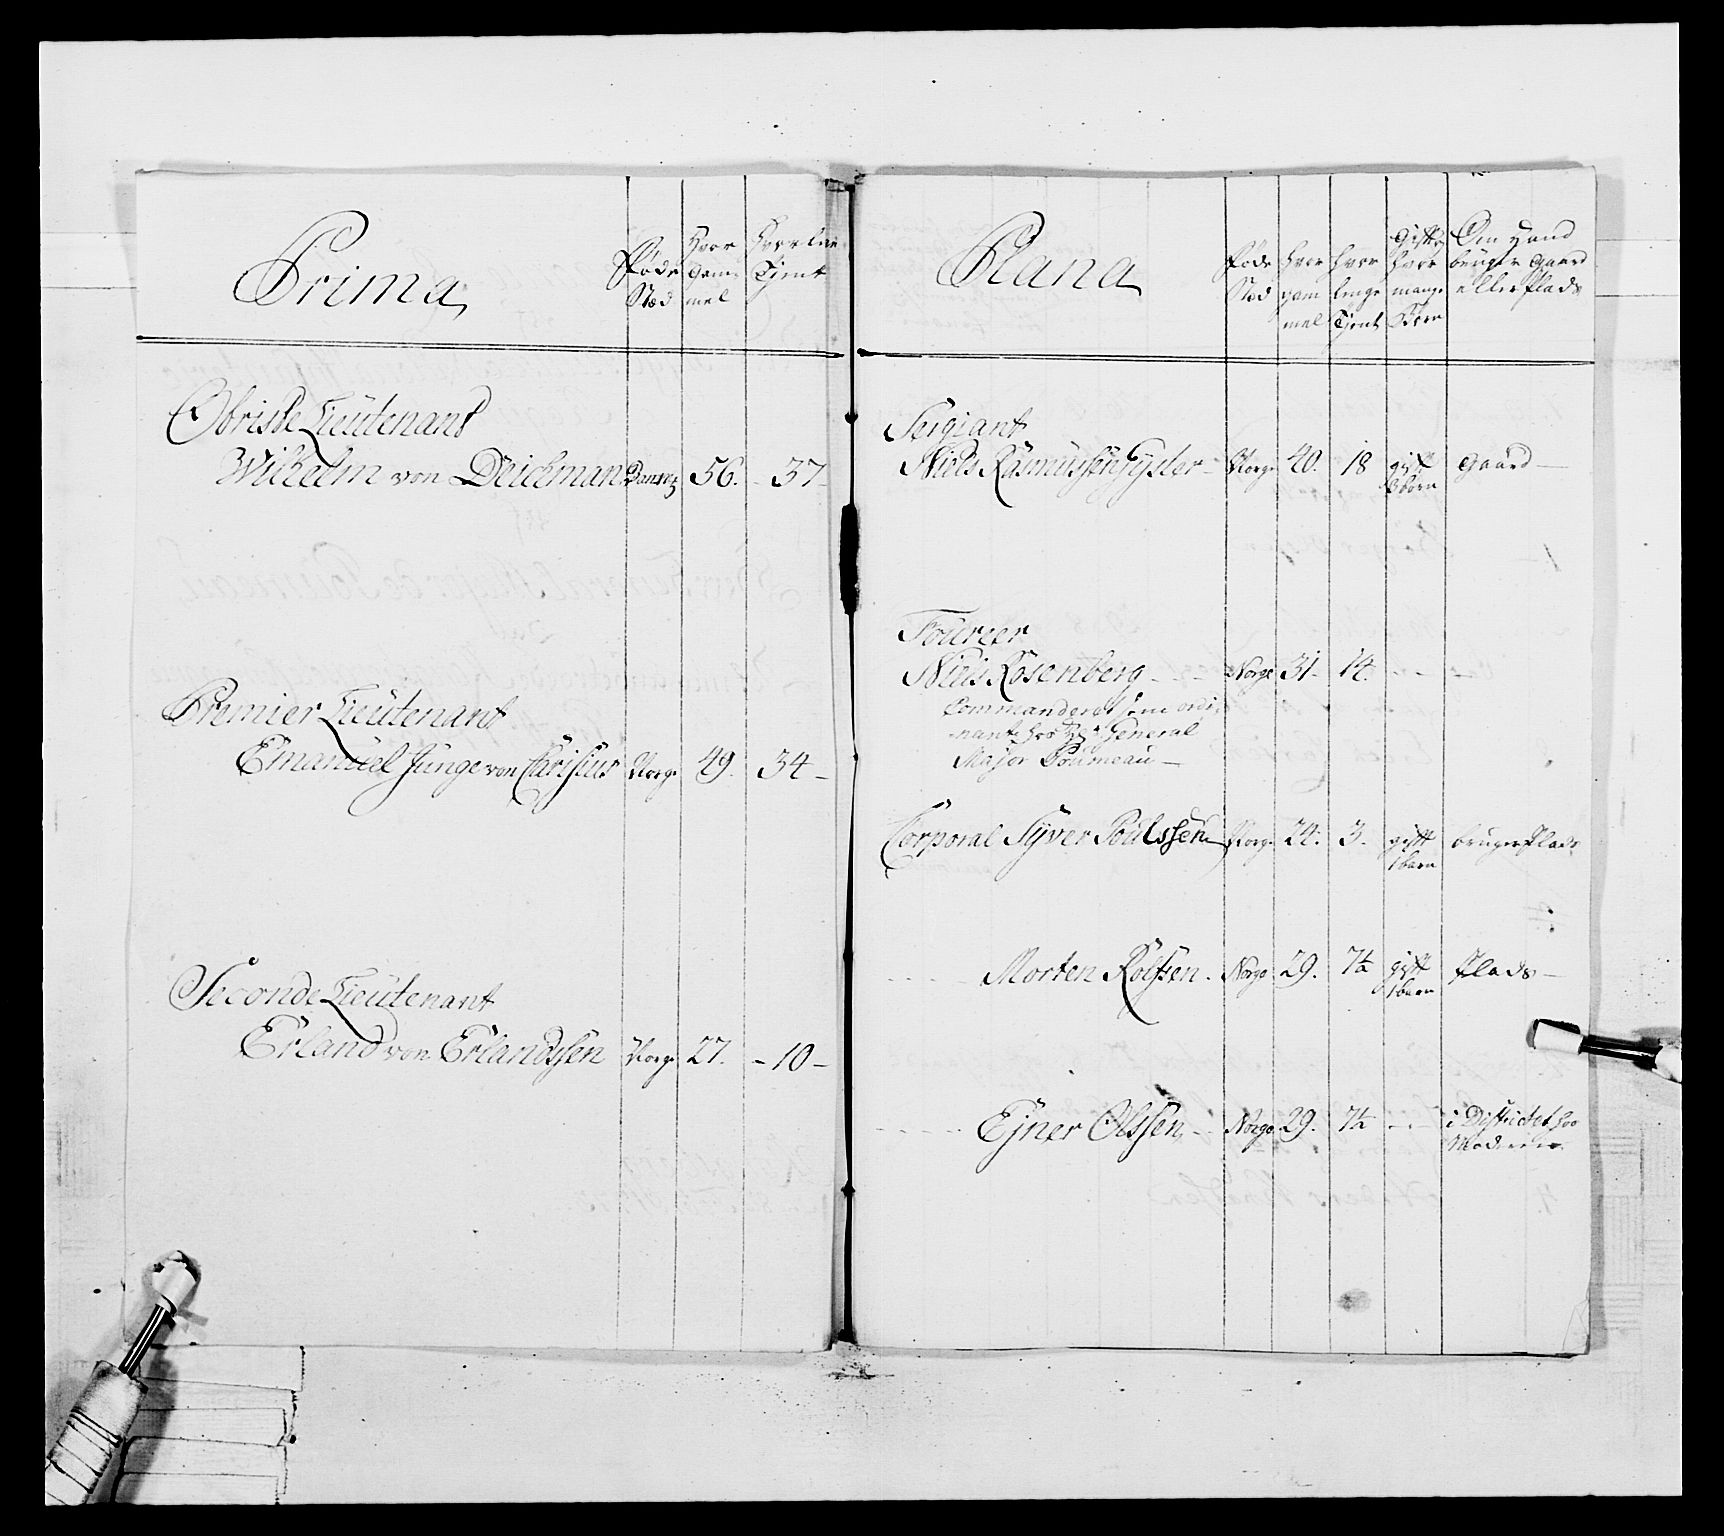 Prima
Føde Sted
Hvor Gam- mel
Hvor længe Tjent
Obriste Lieutenant
Wilhelm von Deichman Danzig 56. - 37 -
Premier Lieutenant
Emanuel Junge von Chrisius Norge 49. 34 -
Seconde Lieutenant
Erland von Erlandssen Norge 27. - 10 -
Plana
Føde Sted
hvor gam mel
hvor lenge Tjent
Gift og hvor mange Børn
Om Hand bruger gaard eller Plads
Sergiant
Niels Rasmussen Gysler - Norge 40. 18 gift 3 børn gaard -
Fourier
Niels Rosenberg - - - Norge 31 - 14. - -
Commanderet som ordi-
nants hos Hr General
Major Poumeau -
Corporal Syver Poulssen Norge 24. 3. gift 1 barn bruger Plads
Morten Rolfsen - Norge 29. 7½ gift 1 barn Plads -
Ejner Olssen - Norge 29. 7½ - - i Districtet hos
Moderen